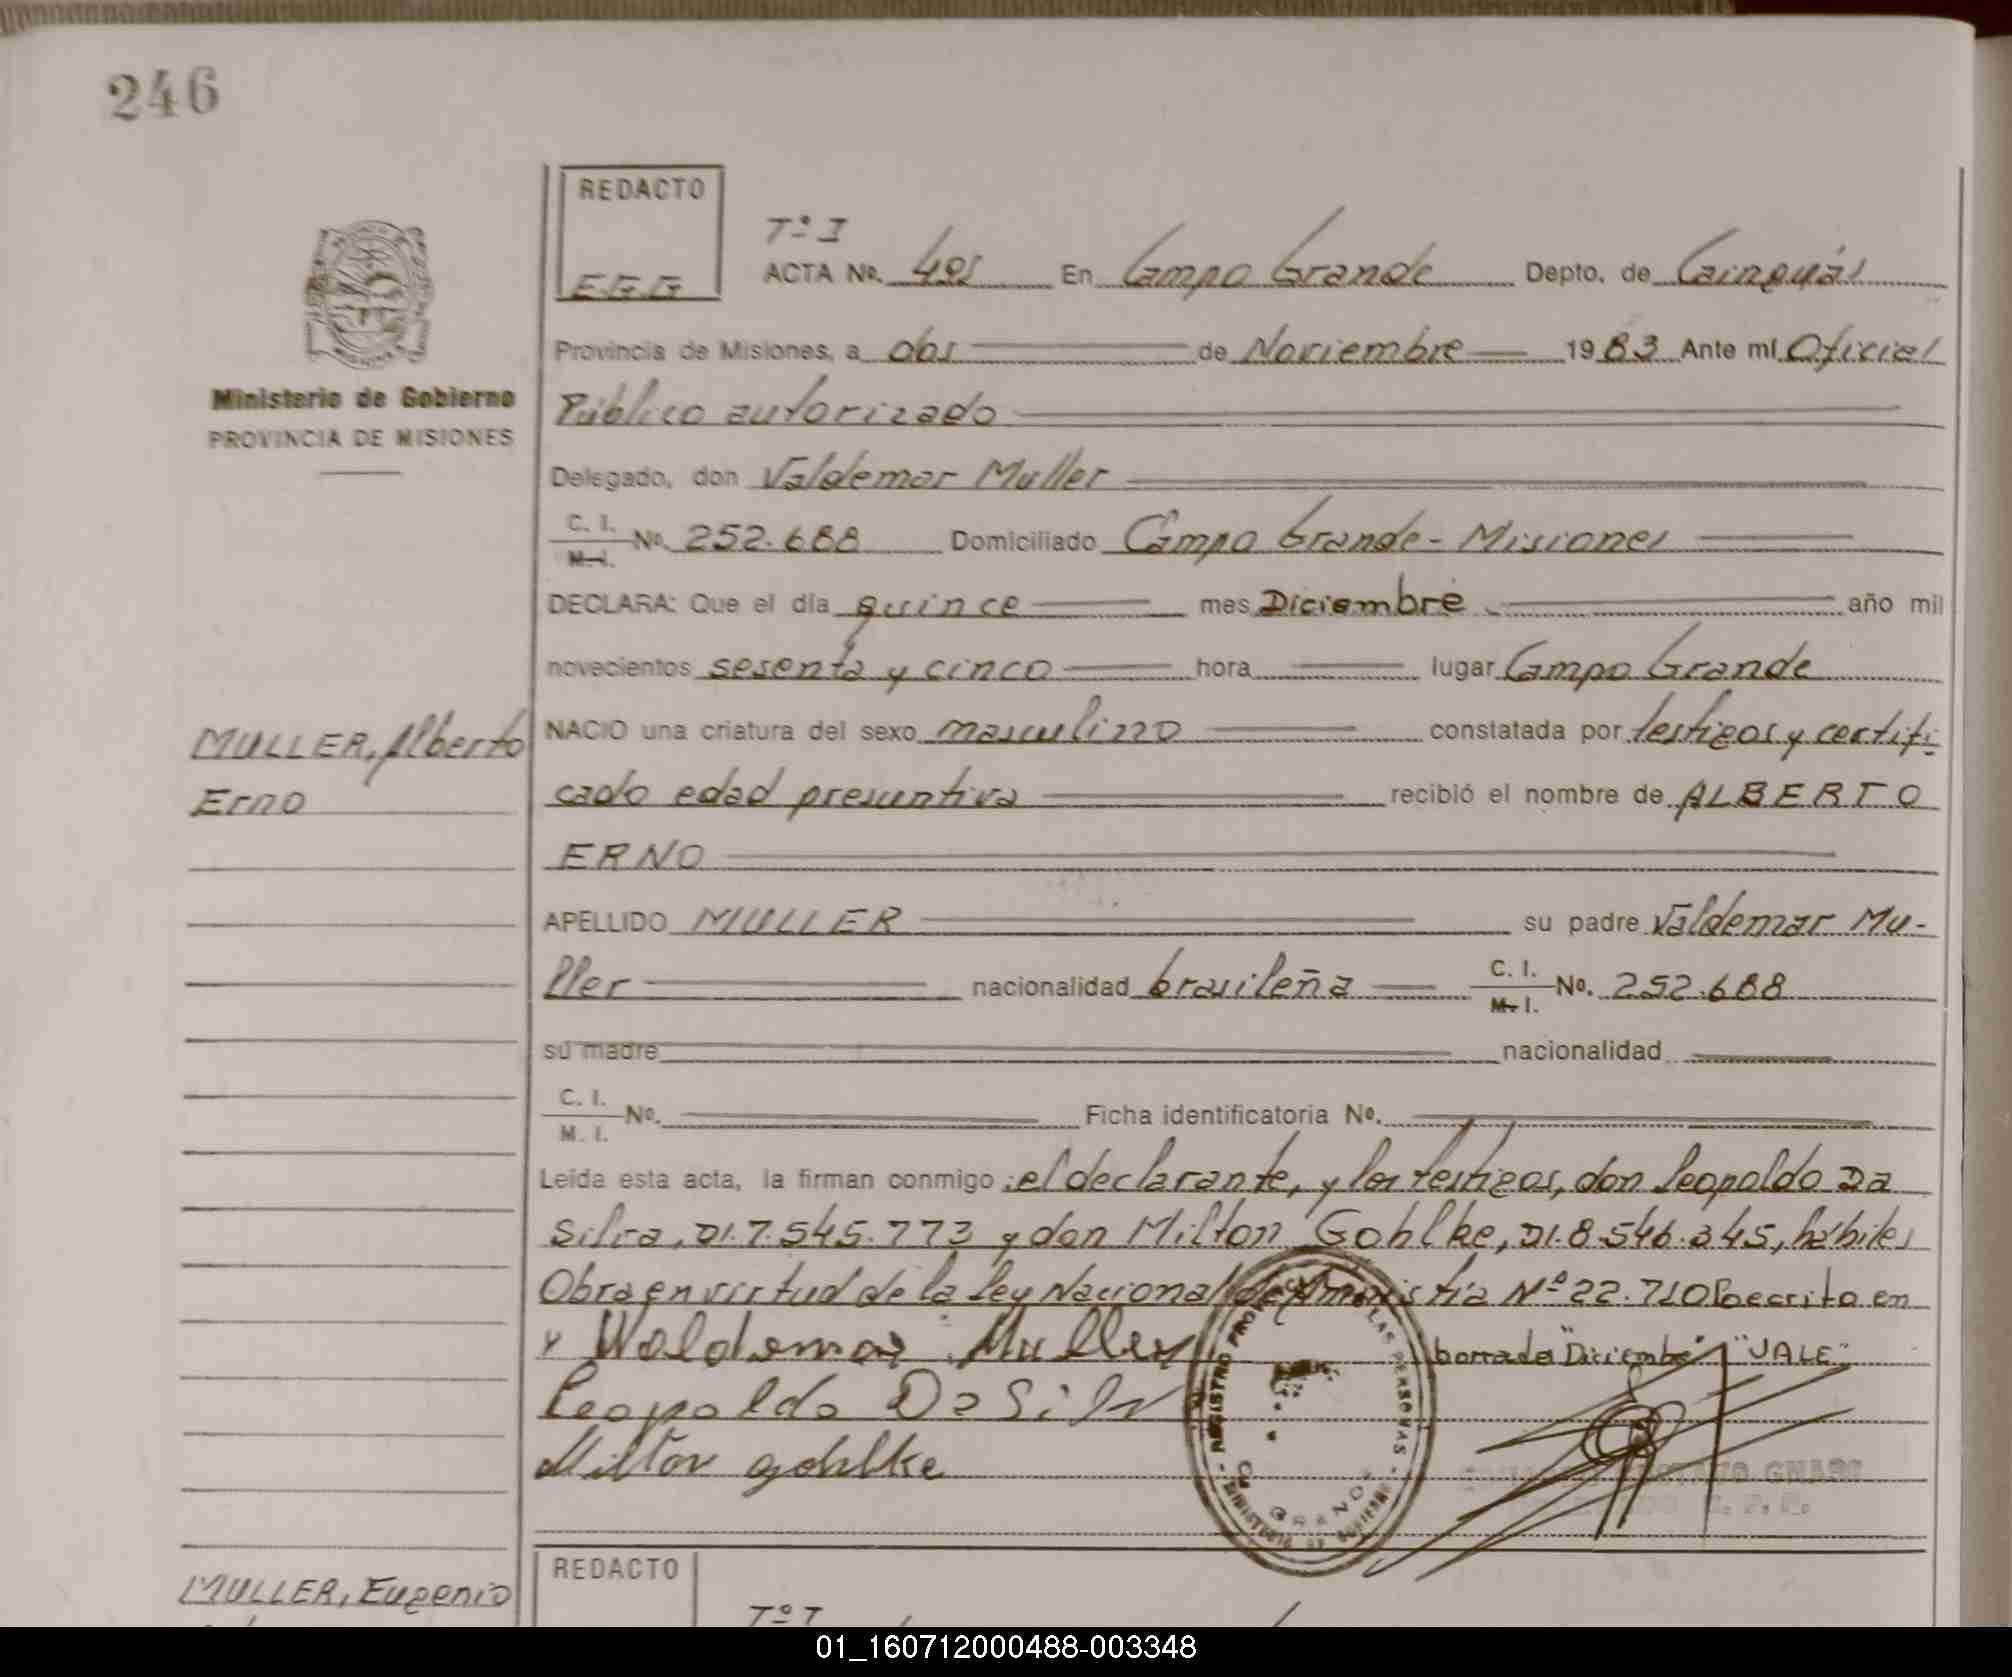 246
REDACTO
E.G.G
Tº I
ACTA Nº. 491 En Campo Grande Depto. de Cainguás
Ministerio de Gobierno
PROVINCIA DE MISIONES
Provincia de Misiones, a dos de Noviembre 1983 Ante mí Oficial
Público autorizado
Delegado, don Valdemar Muller
C. I.
M. I.
Nº. 252.688 Domiciliado Campo Grande - Misiones
DECLARA: Que el día quince mes Diciembre año mil
novecientos sesenta y cinco hora lugar Campo Grande
MULLER, Alberto
Erno
NACIO una criatura del sexo masculino constatada por testigos y certifi-
cado edad presuntiva recibió el nombre de ALBERTO
ERNO
APELLIDO MULLER su padre Valdemar Mu-
ller nacionalidad brasileña C. I.
M. I.
Nº. 252.688
su madre nacionalidad
C. I.
M. I.
Nº. Ficha identificatoria Nº.
Leída esta acta, la firman conmigo: el declarante, y los testigos, don Leopoldo Da
Silva, DI.7.545.773 y don Milton Gohlke, DI.8.546.345, hábiles
Obra en virtud de la Ley Nacional de Amnistía Nº 22.710 Lo escrito en
y Waldemar Muller borrado "Diciembre" "VALE"
Leopoldo Da Silv
Milton gohlke
REGISTRO PROV. LAS PERSONAS
GRANDE
MINISTERIO DE GOBIERNO
REDACTO
MULLER, Eugenio
Tº I
01_160712000488-003348